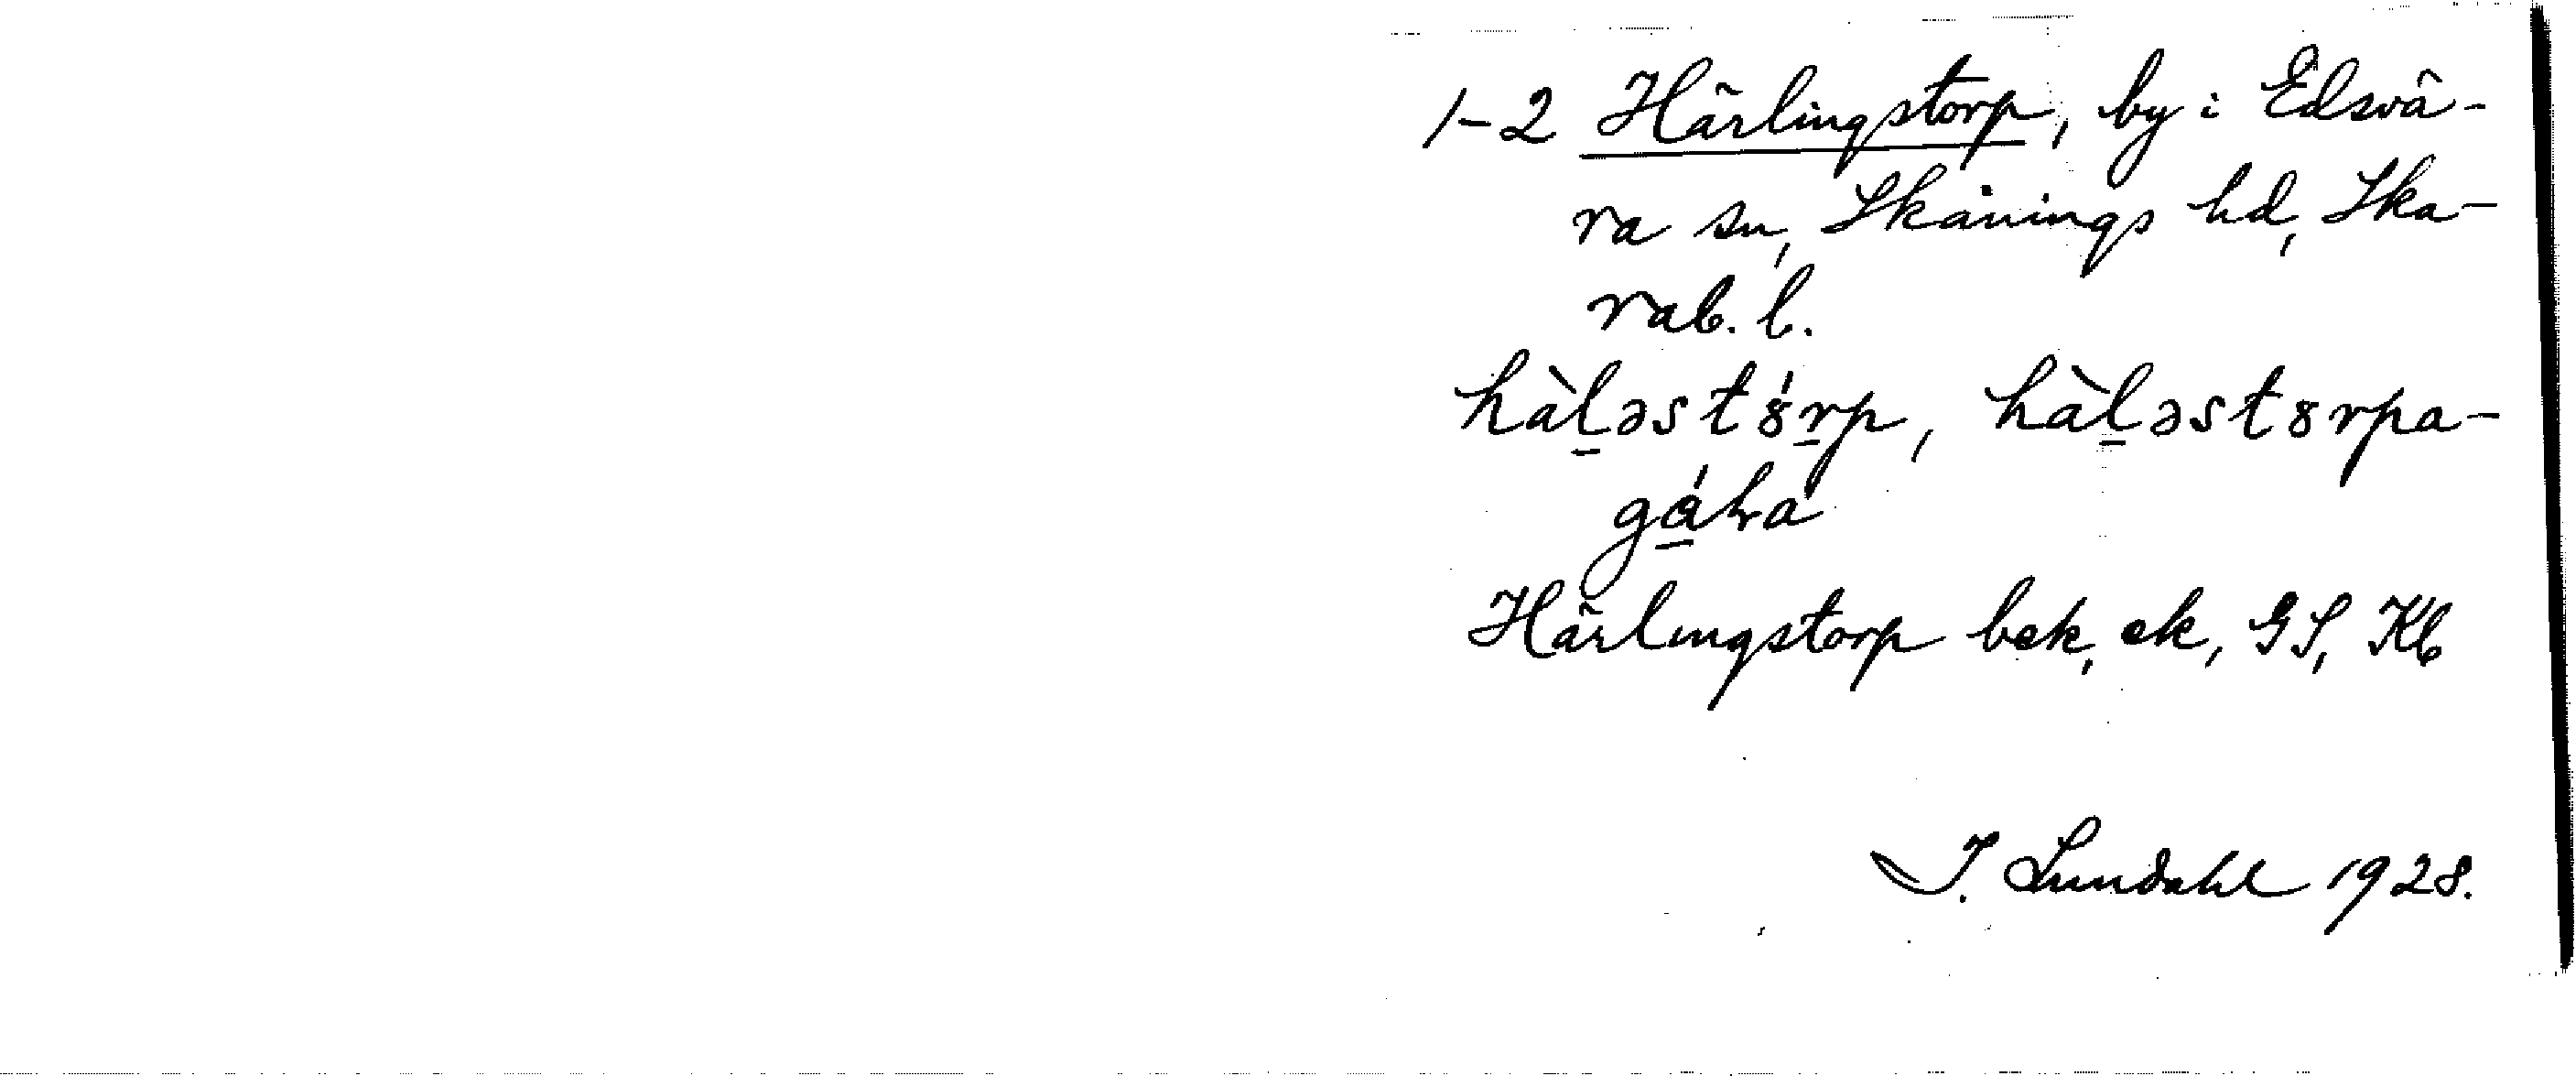 1-2 Härlingstorp, by i Edsvä-
ra sn, Skånings hd, Ska-
rab. l.
hàl̠əstȣ́r̠p, hàl̠əstȣrpa-
gá̠ta
Härlingstorp bek, ek, GS, Kb
I. Lundahl 1928.